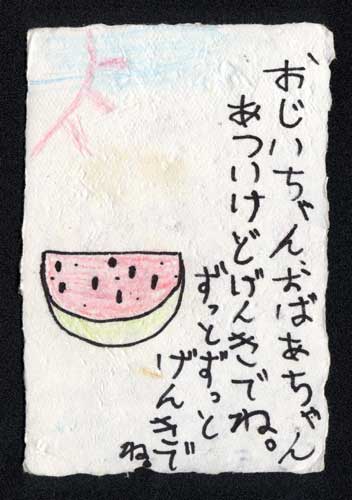 おじいちゃん、おばあちゃん
あついけどげんきでね。
ずっとずっと
げんきで
ね。